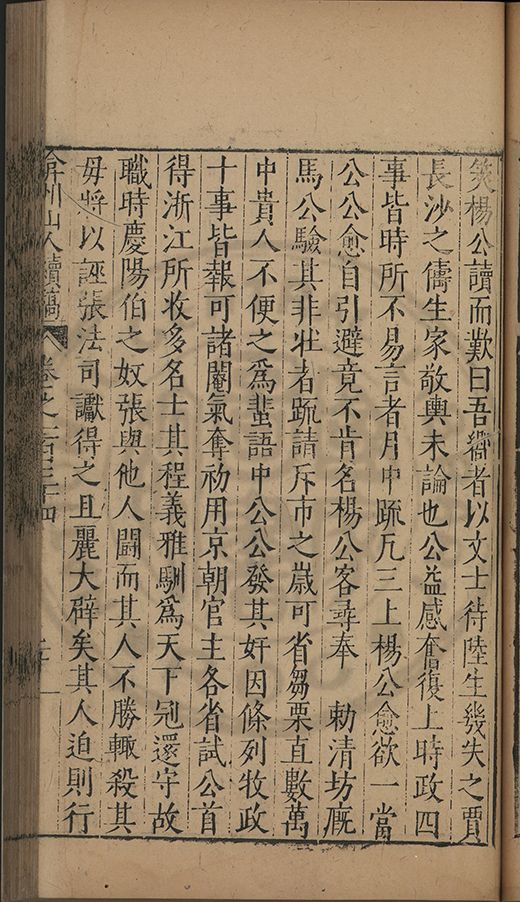 笑楊公讀而歎曰吾曏者以文士待陸生幾失之賈
長沙之儔生家敬輿未論也公益感奮復上時政四
事皆時所不易言者月中疏凡三上楊公愈欲一當
公公愈自引避竟不肯名楊公客尋奉　勅清坊廐
馬公驗其非壯者疏請斥市之嵗可省芻粟直數萬
中貴人不便之爲蜚語中公公發其奸因條列牧政
十事皆報可諸閹氣奪初用京朝官主各省試公首
得浙江所收多名士其程義雅馴爲天下冠還守故
職時慶陽伯之奴張與他人鬬而其人不勝輙殺其
母將以誣張法司讞得之且麗大辟矣其人迫則行
弇州山人續稿 卷之一百三十四